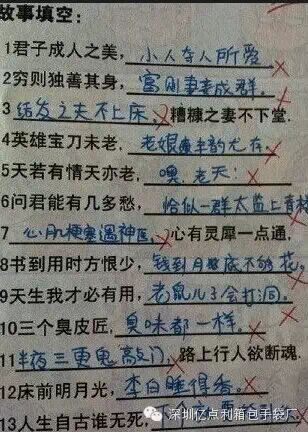 故事填空:
1君子成人之美,小人夺人所爱
2穷则独善其身,富则妻妾成群.
3 结发之夫不上床,糟糠之妻不下堂.
4英雄宝刀未老,老娘丰韵尤存.
5天若有情天亦老,噢,老天!
6问君能有几多愁,恰似一群太监上青楼
7 心肌梗塞遇神医,心有灵犀一点通,
8书到用时方恨少,钱到月底不够花.
9天生我才必有用,老鼠儿子会打洞.
10三个臭皮匠,臭味都一样.
11半夜三更鬼敲门,路上行人欲断魂.
12床前明月光,李白睡得香.
13人生自古谁无死,
深圳亿点利箱包手袋厂